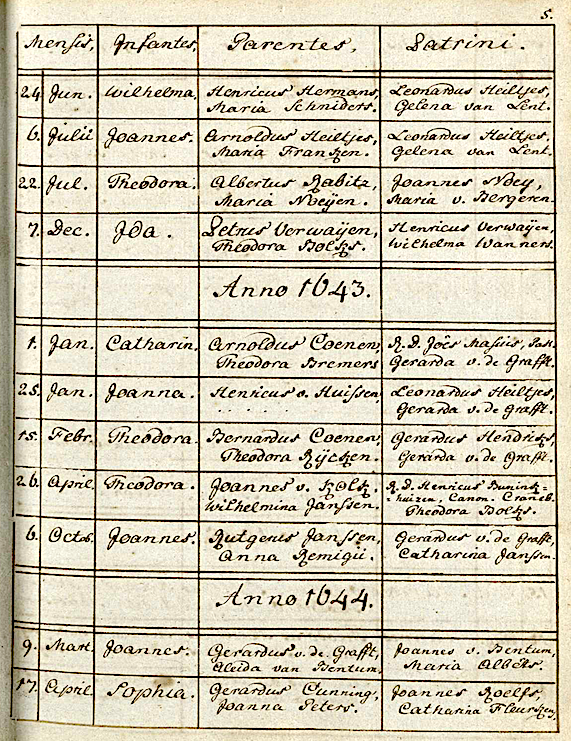 5.
Mensis, Infantes, Parentes, Patrini.
24 Jun. Wilhelma. Henricus Hermans, Leonardus Heiltjes,
Maria Schniders. Gelena van Lent.
6. Julii Joannes. Arnoldus Heiltjes, Leonardus Heiltjes,
Maria Franken. Gelena van Lent.
22. Jul. Theodora. Albertus Rabitz, Joannes Noey,
Maria Noeijen. Maria v. Bergeren.
7. Dec. Ida. Petrus Verwaijen, Henricus Verwaijen,
Theodora Bolks. Wilhelma Wanners.
Anno 1643.
1. Jan. Catharin. Arnoldus Coenen, R. D. Joës Masius, Past.
Theodora Bremers Gerarda v. de Grafft.
25. Jan. Joanna. Henricus v. Huissen Leonardus Heiltjes,
. . . . . . Gerarda v. de Grafft.
15. Febr. Theodora. Bernardus Coenen, Gerardus Hendriks,
Theodora Rijcken. Gerarda v. de Grafft.
26. April. Theodora. Joannes v. Kolk, R. D. Henricus Bunink=
Wilhelmina Janssen. =huizen, Canon. Craneb.
Theodora Bolks.
6. Octob. Joannes. Rutgerus Janssen, Gerardus v. de Grafft,
Anna Remigii. Catharina Janssen.
Anno 1644.
9. Mart. Joannes. Gerardus v. de Grafft, Joannes v. Bentum,
Aleida van Bentum. Maria Albers.
17. April. Sophia. Gerardus Cunning, Joannes Roelfs,
Joanna Peters. Catharina Fleurken.